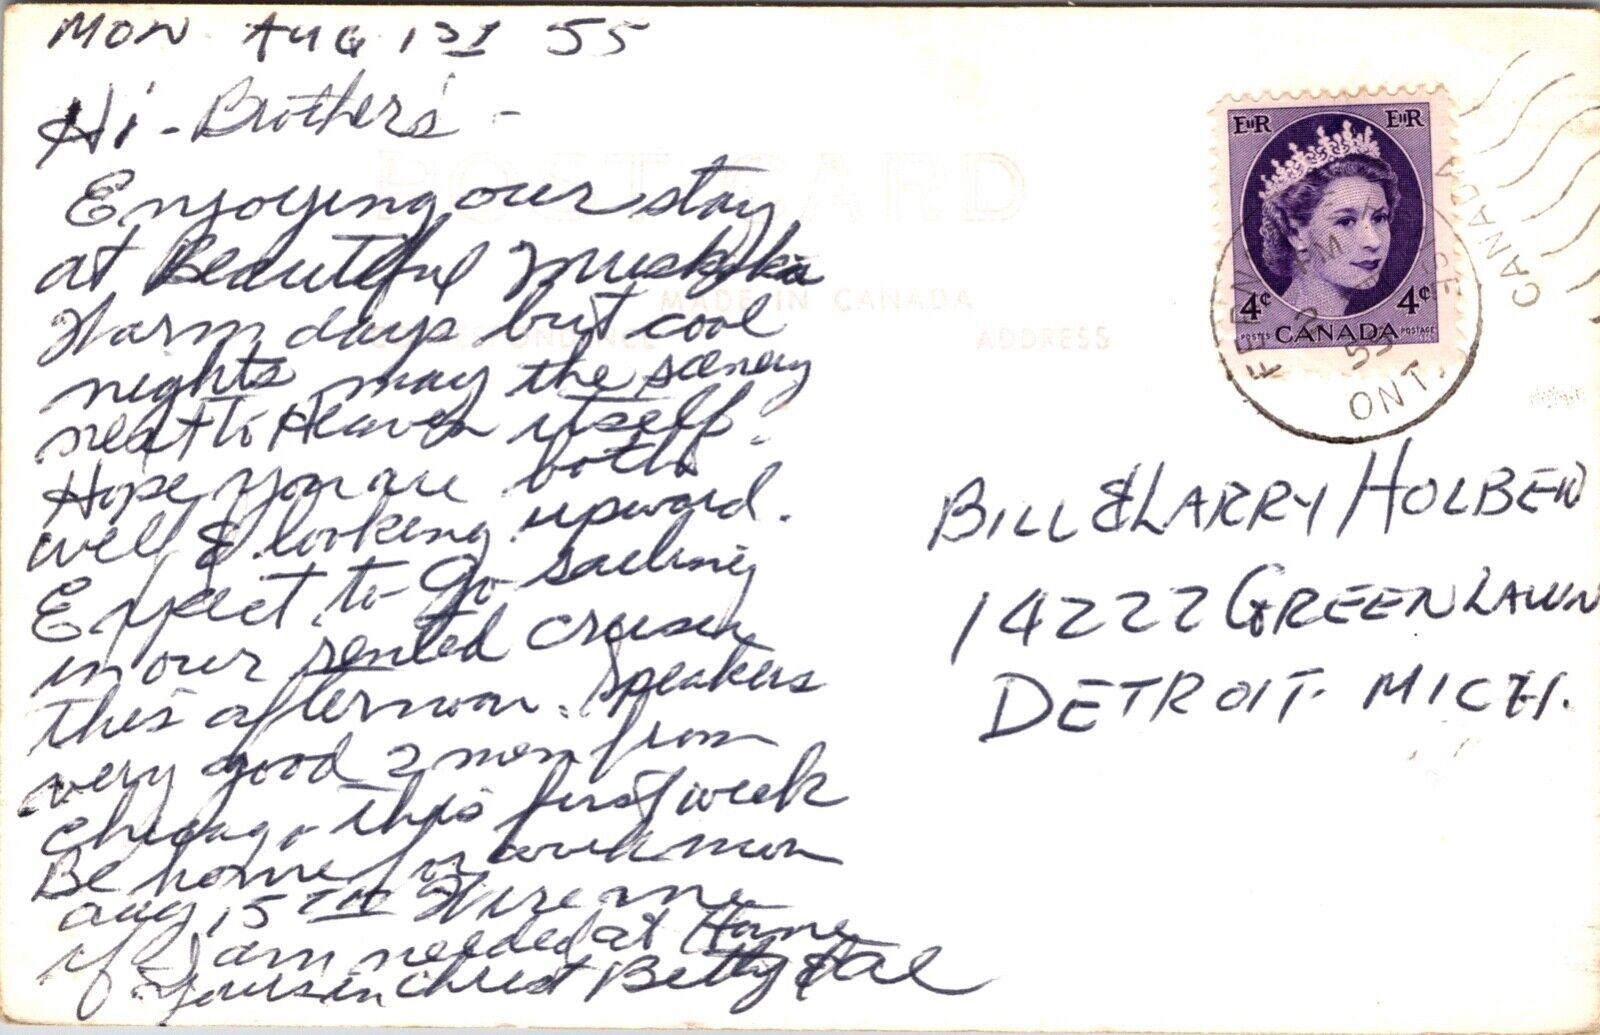 MON AUG 1st 55
Hi - Brother's -
Enjoying our stay
at Beautiful Muskoka
Warm days but cool
nights may the scenery
next to Heaven itself.
Hope you are both
well & looking upward.
Expect to go sailing
in our rented cruiser
this afternoon. Speakers
very good 2 men from
Chicago this first week
Be home for around noon
Aug 15TH Wire me
if I am needed at Home
Yours in Christ Betty & Al
POST CARD
MADE IN CANADA
CORRESPONDENCE
ADDRESS
EIIR EIIR
4¢ 4¢
POSTES CANADA POSTAGE
PM
55
ONT.
CANADA
BILL & LARRY HOLBEN
14222 GREENLAWN
DETROIT. MICH.